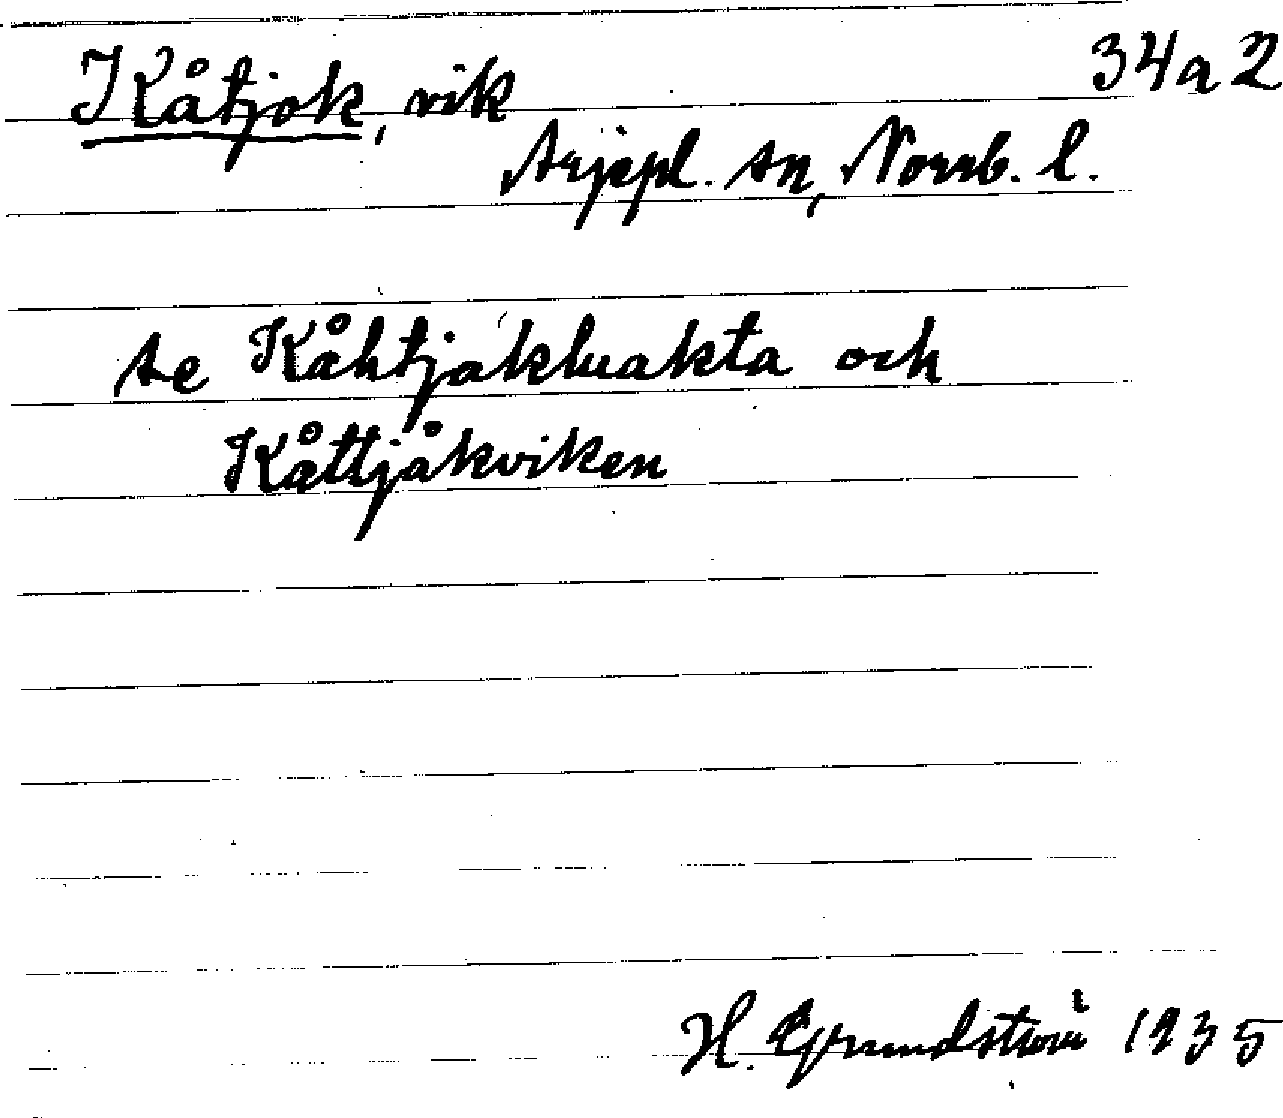 Kåtjok, vik 34a2
Arjepl. sn, Norrb. l.
se Kåhtjakluakta och
Kåttjåkviken
H. Grundström 1935